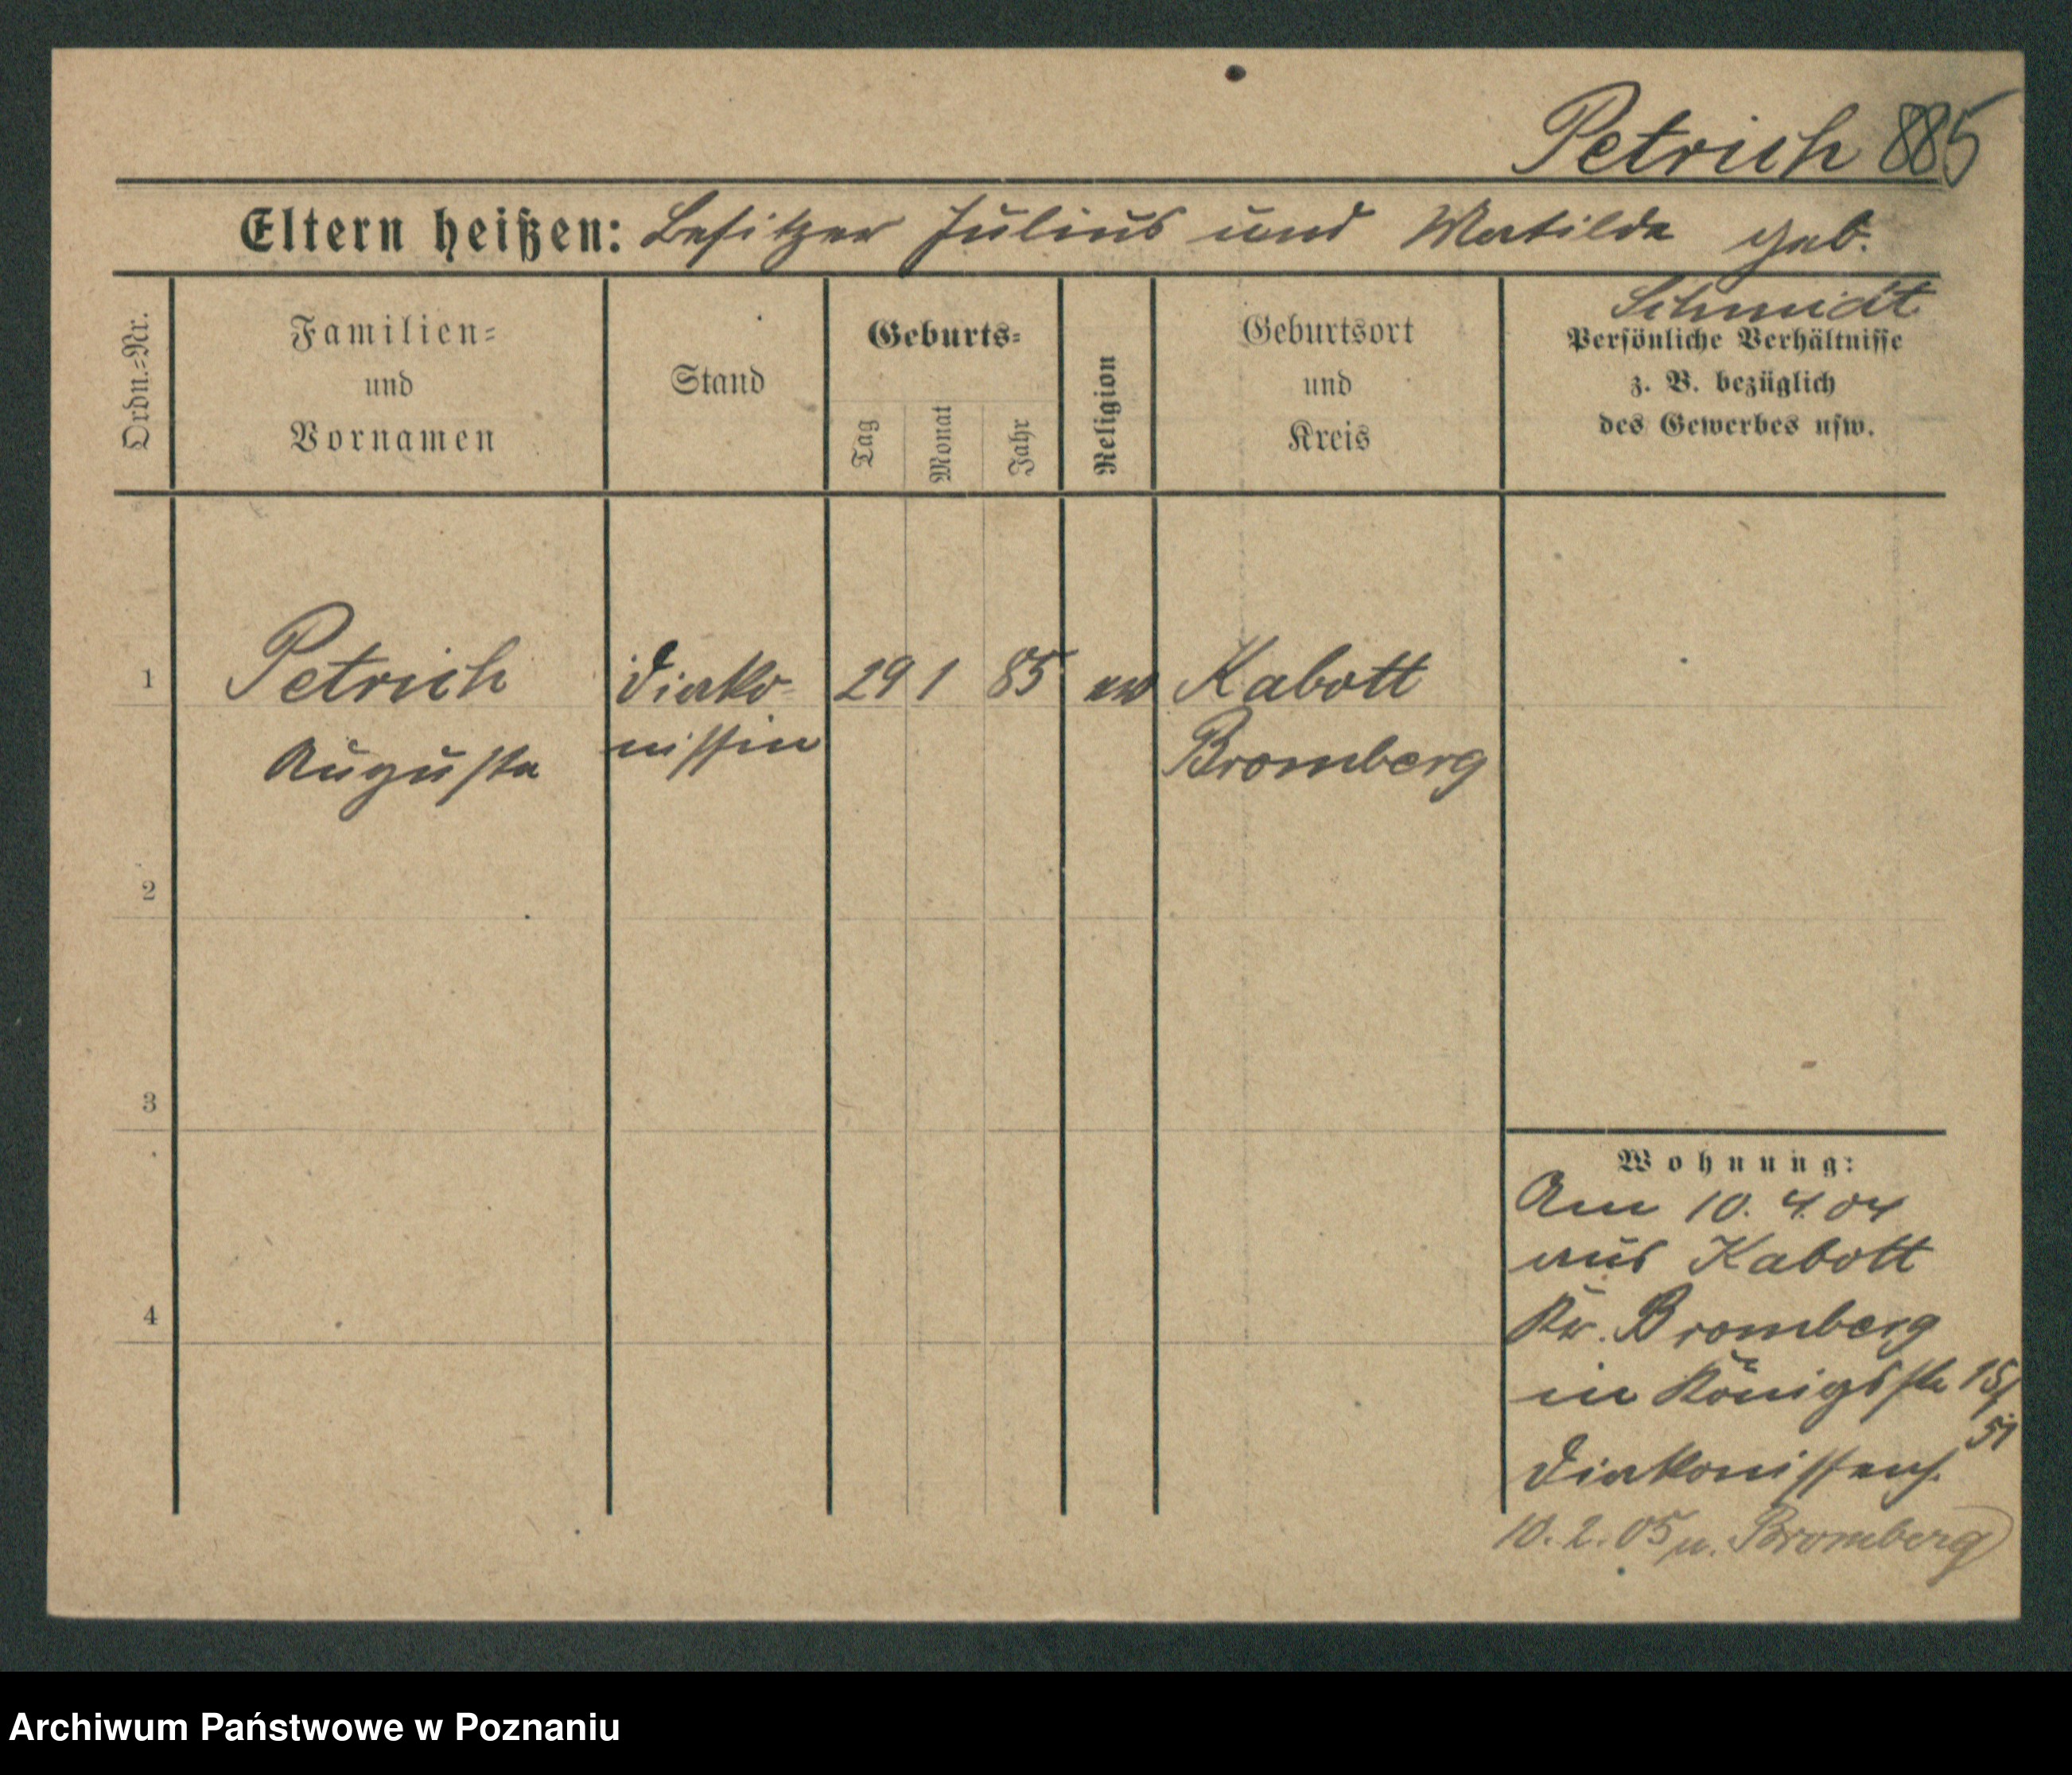 Petrich 885
Eltern heißen: Besitzer Julius und Matilde geb.
Schmidt
Ordn.=Nr.
Familien=
und
Vornamen
Stand
Geburts=
Tag
Monat
Jahr
Religion
Geburtsort
und
Kreis
Persönliche Verhältnisse
z. B. bezüglich
des Gewerbes usw.
1
Petrich
Diako-
29 1 85
ev
Kabott
Auguste
nissin
Bromberg
2
3
4
Wohnung:
Am 10. 4. 04
aus Kabott
Kr. Bromberg
in Königsstr 15/
51
Diakonissenh.
10. 2. 05 n. Bromberg
Archiwum Państwowe w Poznaniu